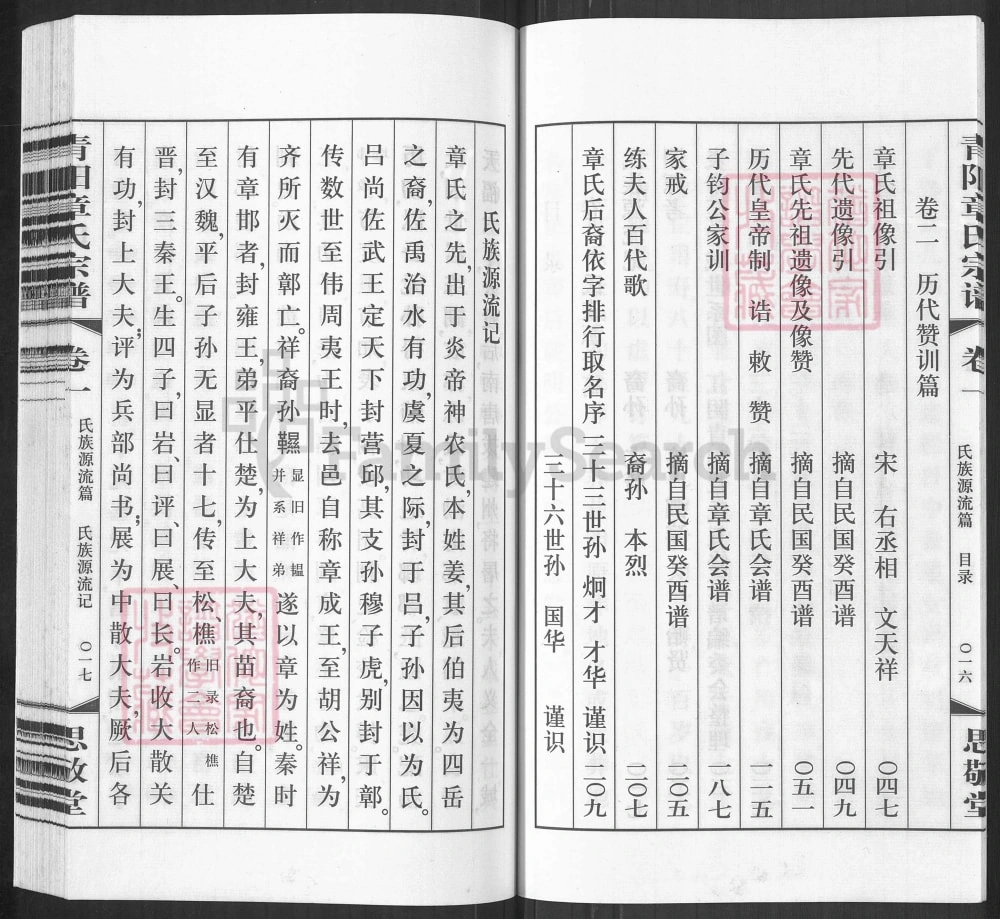 青阳章氏宗谱
卷一
氏族源流篇 目录
〇一六
思敬堂
卷二 历代赞训篇
章氏祖像引 宋 右丞相 文天祥 〇四七
先代遗像引 摘自民国癸酉谱 〇四九
章氏先祖遗像及像赞 摘自民国癸酉谱 〇五一
历代皇帝制 诰 敕 赞 摘自章氏会谱 一一五
子钧公家训 摘自章氏会谱 一八七
家戒 摘自民国癸酉谱 二〇五
练夫人百代歌 裔孙 本烈 二〇七
章氏后裔依字排行取名序 三十三世孙 炯才 才华 谨识 二〇九
三十六世孙 国华 谨识
氏族源流记
章氏之先,出于炎帝神农氏,本姓姜,其后伯夷为四岳
之裔,佐禹治水有功,虞夏之际,封于吕,子孙因以为氏。
吕尚佐武王定天下封营邱,其支孙穆子虎,别封于鄣。
传数世至伟周夷王时,去邑自称章成王,至胡公祥,为
齐所灭而鄣亡。祥裔孙韅显旧作韫并系祥弟遂以章为姓。秦时
有章邯者,封雍王,弟平仕楚,为上大夫,其苗裔也。自楚
至汉魏,平后子孙无显者十七,传至松、樵旧录松樵作二人仕
晋,封三秦王。生四子,曰岩、曰评、曰展、曰长。岩收大散关
有功,封上大夫;评为兵部尚书;展为中散大夫,厥后各
青阳章氏宗谱
卷一
氏族源流篇 氏族源流记
〇一七
思敬堂
FamilySearch